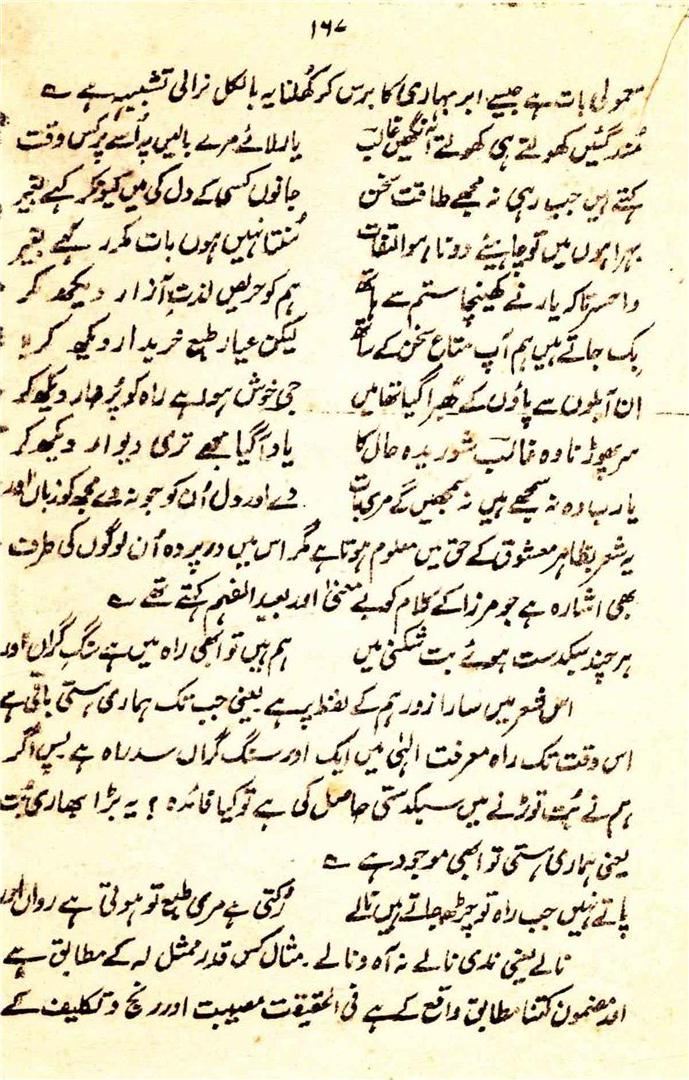 ۱۶۷
معمولی بات ہے جیسے ابر بہاری کا برس کر کھلنا یہ بالکل نرالی تشبیہ ہے ؎
مُند گئیں کھولتے ہی کھولتے آنکھیں غالبؔ یار لائے مرے بالیں پہ اُسے پر کس وقت
کہتے ہیں جب رہی نہ مجھے طاقت سخن جانوں کسی کے دل کی میں کیونکر کہے بغیر
بہرا ہوں میں تو چاہیئے دونا ہو التفات سُنتا نہیں ہوں بات مکرر کہے بغیر
وا حسرتا کہ یار نے کھینچا ستم سے ہاتھ ہم کو حریص لذتِ آزار دیکھ کر
بک جاتے ہیں ہم آپ متاع سخن کے ساتھ لیکن عیار طبع خریدار دیکھ کر
ان آبلوں سے پاؤں کے گھبرا گیا تھا میں جی خوش ہوا ہے راہ کو پُر خار دیکھ کر
سر پھوڑنا وہ غالبؔ شوریدہ حال کا یاد آ گیا مجھے تری دیوار دیکھ کر
یارب وہ نہ سمجھے ہیں نہ سمجھیں گے مری بات دے اور دل اُن کو جو نہ دے مجھ کو زباں اور
یہ شعر بظاہر معشوق کے حق میں معلوم ہوتا ہے مگر اس میں در پردہ اُن لوگوں کی طرف
بھی اشارہ ہے جو مرزا کے کلام کو بے معنیٰ اور بعید الفہم کہتے تھے ؎
ہر چند سبکدست ہوئے بت شکنی میں ہم ہیں تو ابھی راہ میں ہے سنگِ گراں اور
اس شعر میں سارا زور ہم کے لفظ پر ہے یعنی جب تک ہماری ہستی باقی ہے
اس وقت تک راہ معرفت الٰہی میں ایک اور سنگ گراں سد راہ ہے پس اگر
ہم نے بُت توڑنے میں سبکدستی حاصل کی ہے تو کیا فائدہ ؟ یہ بڑا بھاری بُت
یعنی ہماری ہستی تو ابھی موجود ہے ؎
پاتے نہیں جب راہ تو چڑھ جاتے ہیں نالے رُکتی ہے مری طبع تو ہوتی ہے رواں اور
نالے یعنی ندی نالے نہ آہ و نالے ۔ مثال کس قدر ممثل لہ کے مطابق ہے
اور مضمون کتنا مطابق واقع کے ہے فی الحقیقت مصیبت اور رنج و تکلیف کے